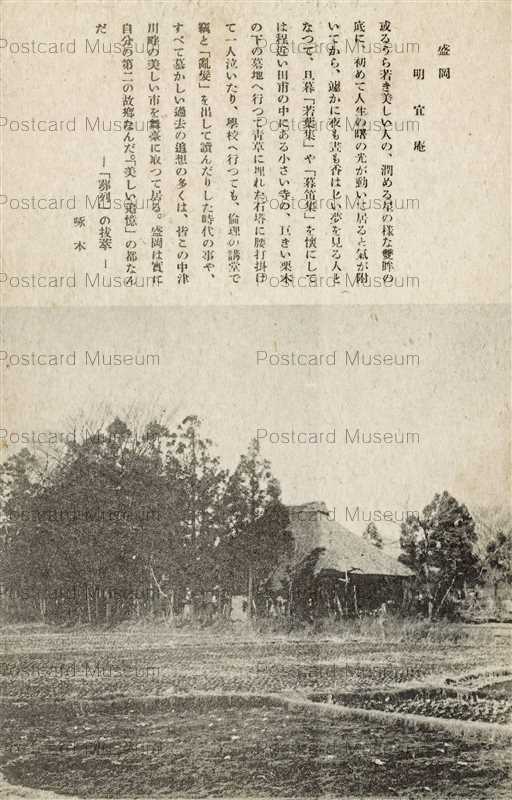 盛岡
明宜庵
或るうら若き美しい人の、潤める星の様な雙眸の
底に、初めて人生の曙の光が動いて居ると氣が附
いてから、遽かに夜も晝も香はしい夢を見る人と
なつて、旦暮『若菜集』や『暮笛集』を懷にして
は程近い田甫の中にある小さい寺の、巨きい栗木
の下の墓地へ行つて青草に埋れた石塔に腰打掛け
て一人泣いたり、學校へ行つても、倫理の講堂で
竊と『亂髮』を出して讀んだりした時代の事や、
すべて慕かしい過去の追想の多くは、皆この中津
川畔の美しい市を舞臺に取つて居る。盛岡は實に
自分の第二の故鄕なんだ。『美しい追憶』の都なん
だ
―『葬列』の拔萃―
啄木
Postcard Museum Postcard Museum Postcard Museum
Postcard Museum Postcard Museum Postcard Museum
Postcard Museum Postcard Museum Postcard Museum
Postcard Museum Postcard Museum Postcard Museum
Postcard Museum Postcard Museum Postcard Museum
Postcard Museum Postcard Museum Postcard Museum
Postcard Museum Postcard Museum Postcard Museum
Postcard Museum Postcard Museum Postcard Museum
Postcard Museum Postcard Museum Postcard Museum
Postcard Museum Postcard Museum Postcard Museum